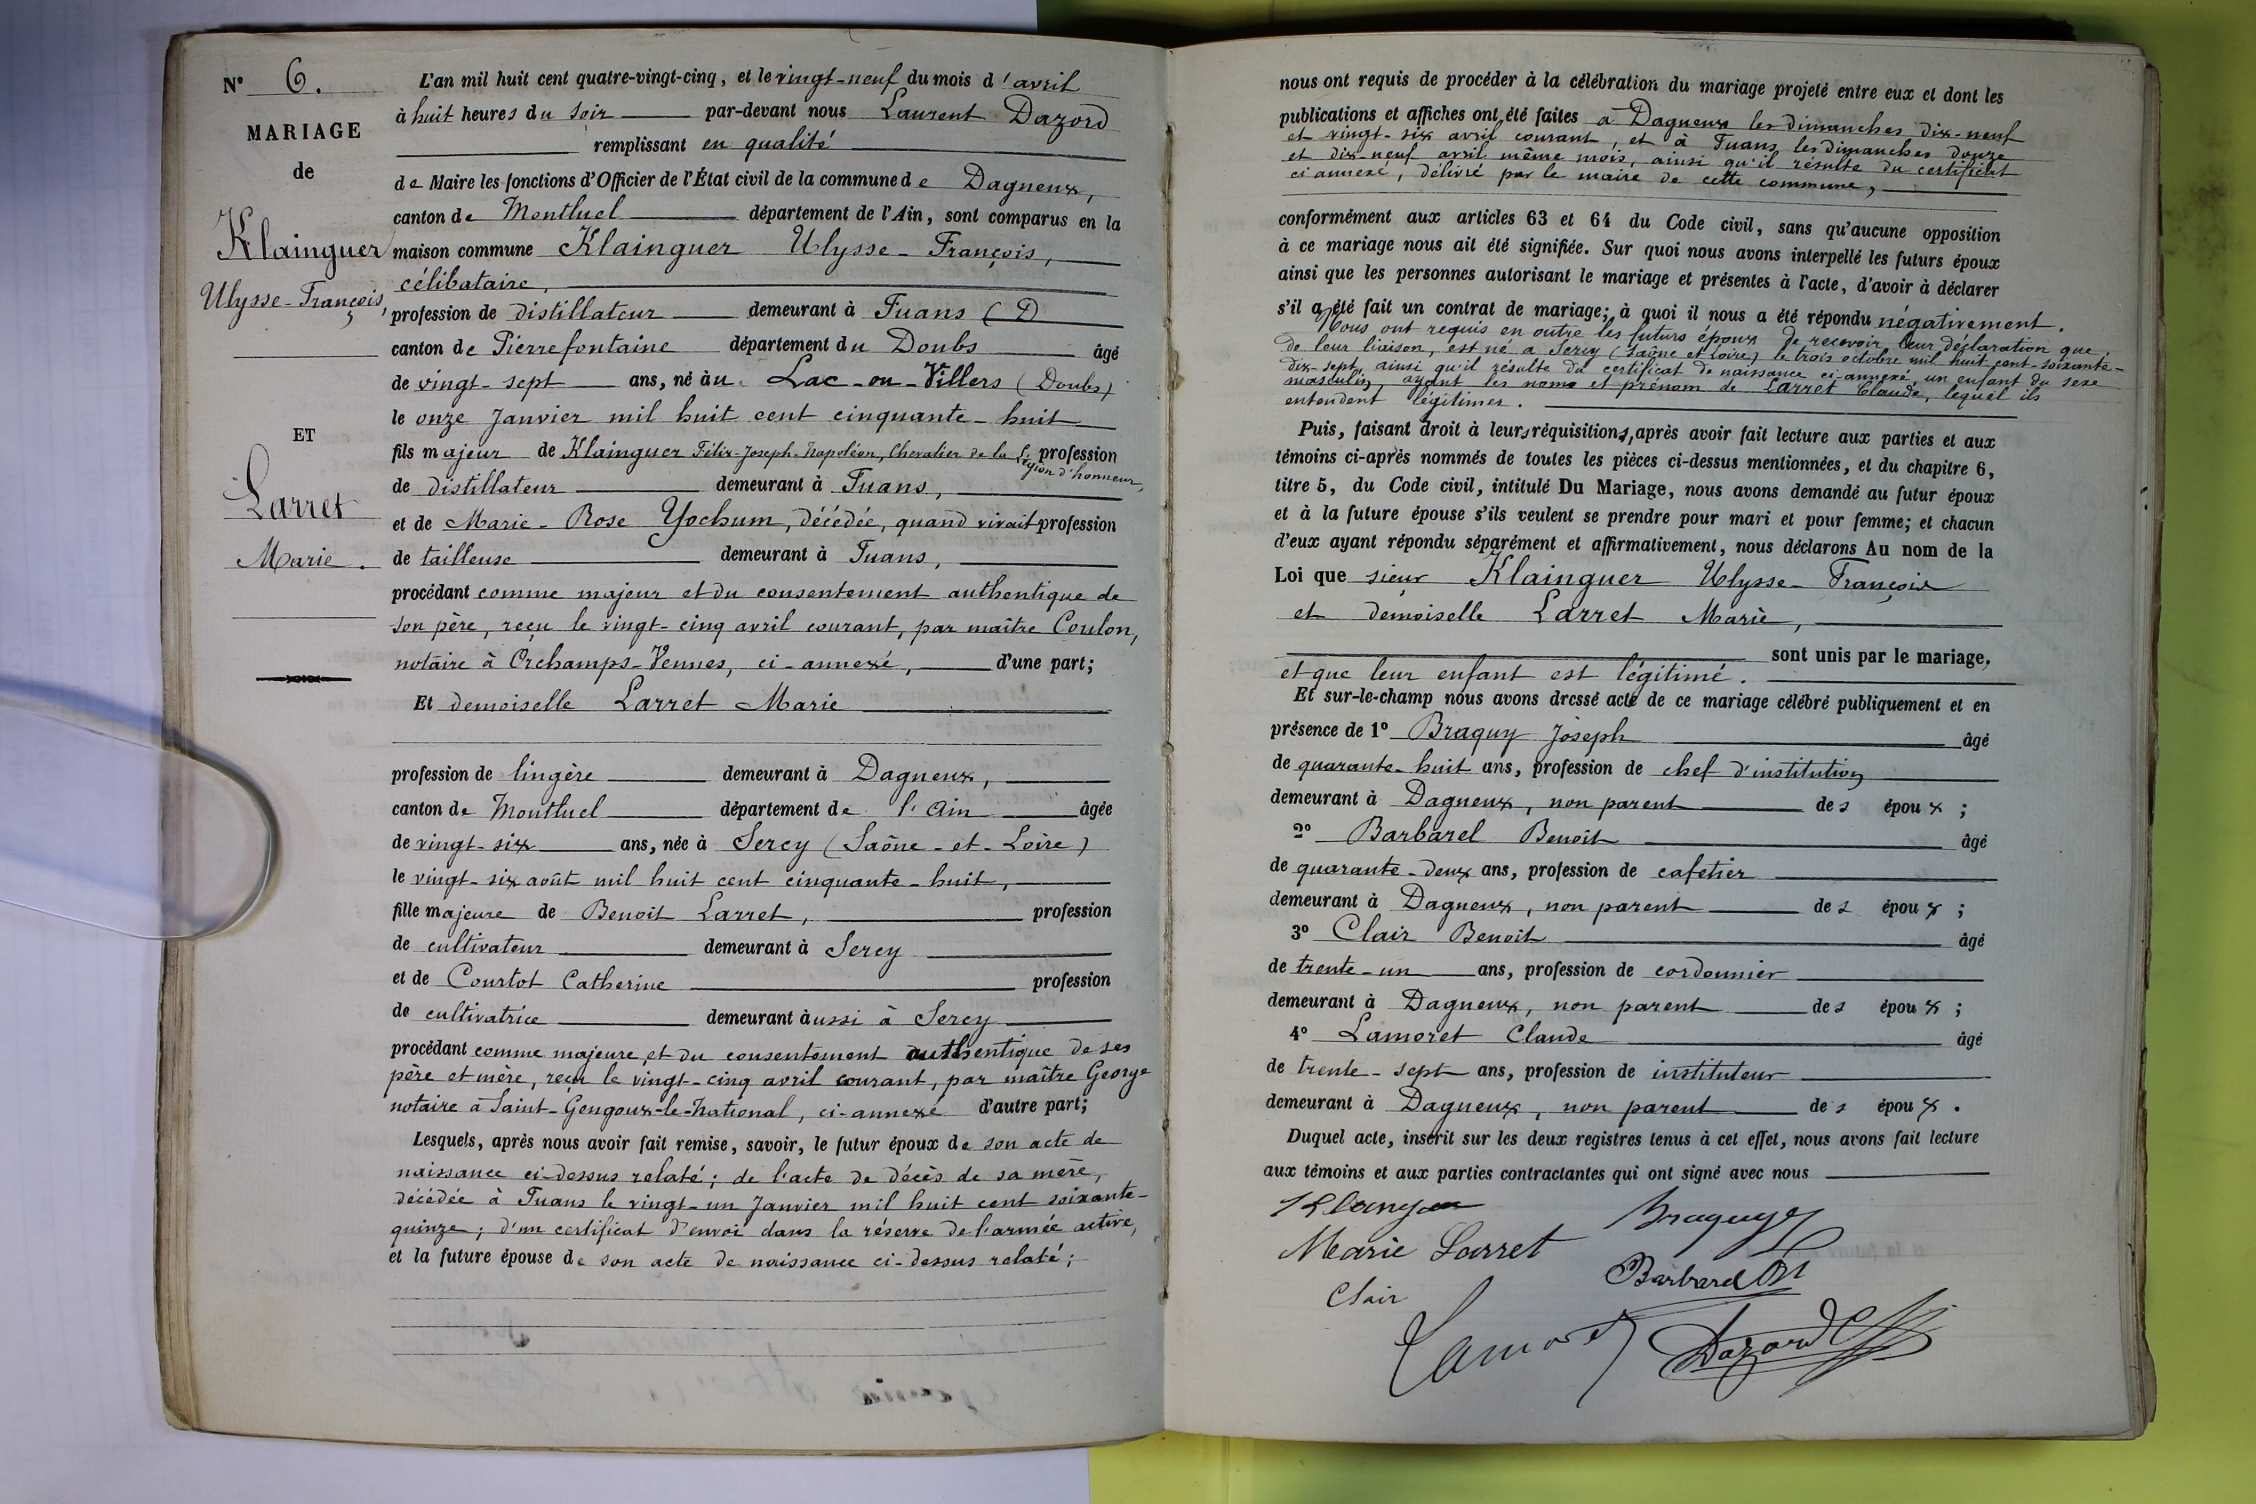 N° 6.
MARIAGE
de
Klainguer
Ulysse-François,
ET
Larret
Marie.
L'an mil huit cent quatre-vingt-cinq, et le vingt-neuf du mois d'avril
à huit heures du soir par-devant nous Laurent Dazord
remplissant en qualité
de Maire les fonctions d'Officier de l'État civil de la commune de Dagneux,
canton de Montluel département de l'Ain, sont comparus en la
maison commune Klainguer Ulysse-François,
célibataire,
profession de distillateur demeurant à Fuans (D
canton de Pierrefontaine département du Doubs âgé
de vingt-sept ans, né àu Lac-ou-Villers (Doubs)
le onze Janvier mil huit cent cinquante-huit
fils majeur de Klainguer Félix-Joseph-Napoléon, Chevalier de la Légion d'honneur, profession
de distillateur demeurant à Fuans,
et de Marie-Rose Yochum, décédée, quand vivait profession
de tailleuse demeurant à Fuans,
procédant comme majeur et du consentement authentique de
son père, reçu le vingt-cinq avril courant, par maître Coulon,
notaire à Orchamps-Vennes, ci-annexé, d'une part;
Et demoiselle Larret Marie
profession de lingère demeurant à Dagneux,
canton de Montluel département de l'Ain âgée
de vingt-six ans, née à Sercy (Saône-et-Loire)
le vingt-six août mil huit cent cinquante-huit,
fille majeure de Benoit Larret, profession
de cultivateur demeurant à Sercy
et de Courtot Catherine profession
de cultivatrice demeurant àussi à Sercy
procédant comme majeure et du consentement authentique de ses
père et mère, reçu le vingt-cinq avril courant, par maître George
notaire à Saint-Gengoux-le-National, ci-annexé d'autre part;
Lesquels, après nous avoir fait remise, savoir, le futur époux de son acte de
naissance ci-dessus relaté; de l'acte de décès de sa mère,
décédée à Fuans le vingt-un Janvier mil huit cent soixante-
quinze; d'un certificat d'envoi dans la réserve de l'armée active,
et la future épouse de son acte de naissance ci-dessus relaté;
nous ont requis de procéder à la célébration du mariage projeté entre eux et dont les
publications et affiches ont été faites à Dagneux les dimanches dix-neuf
et vingt-six avril courant, et à Fuans les dimanches douze
et dix-neuf avril même mois, ainsi qu'il résulte du certificat
ci annexé, délivré par le maire de cette commune,
conformément aux articles 63 et 64 du Code civil, sans qu'aucune opposition
à ce mariage nous ait été signifiée. Sur quoi nous avons interpellé les futurs époux
ainsi que les personnes autorisant le mariage et présentes à l'acte, d'avoir à déclarer
s'il a été fait un contrat de mariage; à quoi il nous a été répondu négativement.
Nous ont requis en outre les futurs époux de recevoir leur déclaration que,
de leur liaison, est né à Sercy (Saône et Loire) le trois octobre mil huit cent-soixante-
dix-sept, ainsi qu'il résulte du certificat de naissance ci-annexé, un enfant du sexe
masculin, ayant les noms et prénom de Larret Claude, lequel ils
entendent légitimer.
Puis, faisant droit à leurs réquisitions, après avoir fait lecture aux parties et aux
témoins ci-après nommés de toutes les pièces ci-dessus mentionnées, et du chapitre 6,
titre 5, du Code civil, intitulé Du Mariage, nous avons demandé au futur époux
et à la future épouse s'ils veulent se prendre pour mari et pour femme; et chacun
d'eux ayant répondu séparément et affirmativement, nous déclarons Au nom de la
Loi que sieur Klainguer Ulysse-François
et demoiselle Larret Marie,
sont unis par le mariage,
et que leur enfant est légitimé.
Et sur-le-champ nous avons dressé acte de ce mariage célébré publiquement et en
présence de 1° Braguy Joseph âgé
de quarante-huit ans, profession de chef d'institution
demeurant à Dagneux, non parent des époux;
2° Barbarel Benoît âgé
de quarante-deux ans, profession de cafetier
demeurant à Dagneux, non parent des époux;
3° Clair Benoit âgé
de trente-un ans, profession de cordonnier
demeurant à Dagneux, non parent des époux;
4° Lamoret Claude âgé
de trente-sept ans, profession de instituteur
demeurant à Dagneux, non parent des époux.
Duquel acte, inscrit sur les deux registres tenus à cet effet, nous avons fait lecture
aux témoins et aux parties contractantes qui ont signé avec nous
Braguy
Marie Larret
Barbarel
Clair
Lamoret
Dazord